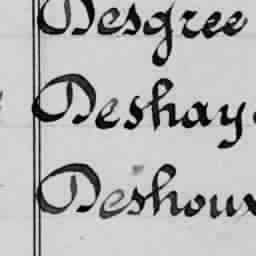 Desgree
Deshay
Deshoux